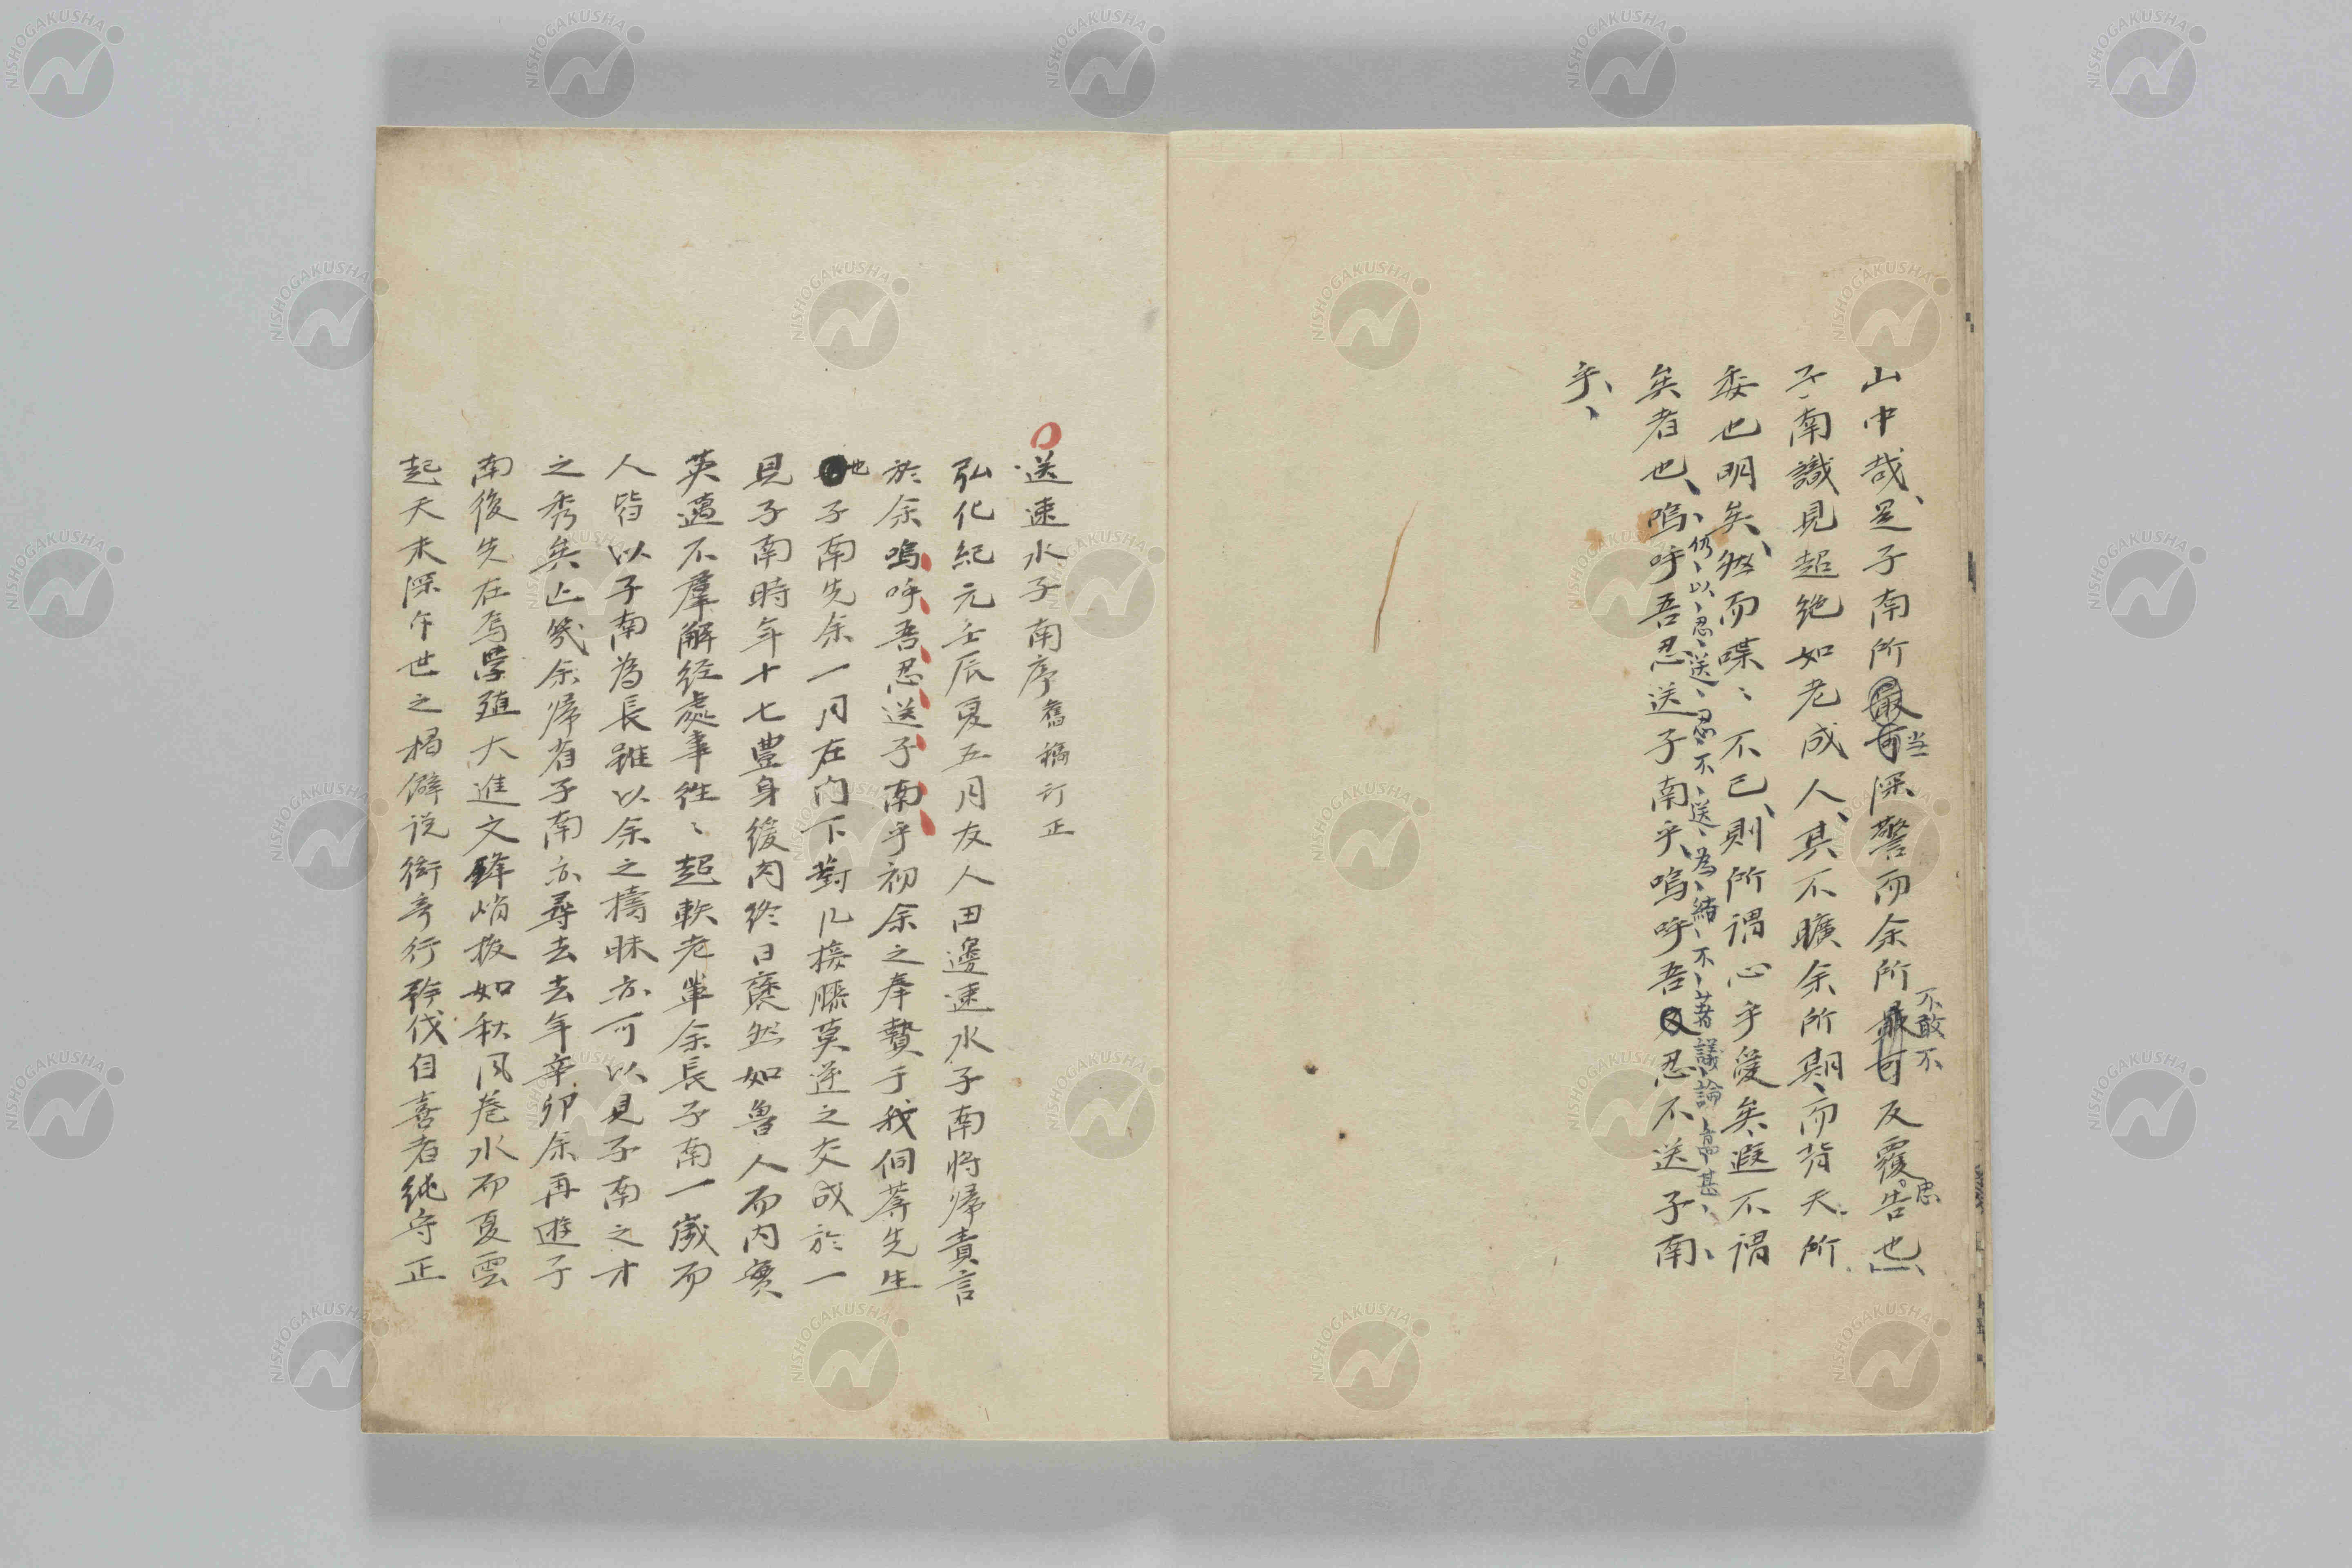 山中哉、是子南所最可当深警而余所最可不敢不反覆告思也、
子南識見超絶如老成人、其不曠余所期、而背天所
委也明矣、然而喋〻不已、則所謂心乎愛矣遐不謂
矣者也、嗚呼吾忍送子南乎、嗚呼吾又忍不送子南、
仍以忍送忍不送為結不著議論高甚
乎、
送速水子南序舊稿訂正
弘化紀元壬辰夏五月友人田邊速水子南将帰責言
於余嗚呼吾忍送子南乎初余之奉贄于我侗菴先生
也子南先余一月在门下對几接膝莫逆之交成於一
見子南時年十七豊身緩肉終日褎然如魯人而内實
英邁不羣解経處事徃〻超軼老軰余長子南一歳而
人皆以子南為長雖以余之檮昧亦可以見子南之才
之秀矣亡幾余帰省子南亦尋去去年辛卯余再遊子
南後先在焉學殖大進文鋒峭抜如秋风巻水而夏雲
起天未深乍世之掲僻说衒奇行矜伐自喜者純守正